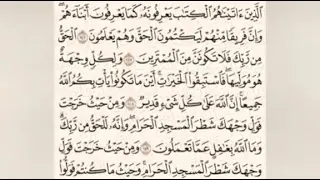 ٱلَّذِينَ ءَاتَيْنَٰهُمُ ٱلْكِتَٰبَ يَعْرِفُونَهُۥ كَمَا يَعْرِفُونَ أَبْنَآءَهُمْ
وَإِنَّ فَرِيقًا مِّنْهُمْ لَيَكْتُمُونَ ٱلْحَقَّ وَهُمْ يَعْلَمُونَ ۝ ٱلْحَقُّ
مِن رَّبِّكَ فَلَا تَكُونَنَّ مِنَ ٱلْمُمْتَرِينَ ۝ وَلِكُلٍّ وِجْهَةٌ
هُوَ مُوَلِّيهَا فَٱسْتَبِقُوا۟ ٱلْخَيْرَٰتِ أَيْنَ مَا تَكُونُوا۟ يَأْتِ بِكُمُ ٱللَّهُ
جَمِيعًا إِنَّ ٱللَّهَ عَلَىٰ كُلِّ شَىْءٍ قَدِيرٌ ۝ وَمِنْ حَيْثُ خَرَجْتَ
فَوَلِّ وَجْهَكَ شَطْرَ ٱلْمَسْجِدِ ٱلْحَرَامِ وَإِنَّهُۥ لَلْحَقُّ مِن رَّبِّكَ
وَمَا ٱللَّهُ بِغَٰفِلٍ عَمَّا تَعْمَلُونَ ۝ وَمِنْ حَيْثُ خَرَجْتَ
فَوَلِّ وَجْهَكَ شَطْرَ ٱلْمَسْجِدِ ٱلْحَرَامِ وَحَيْثُ مَا كُنتُمْ فَوَلُّوا۟